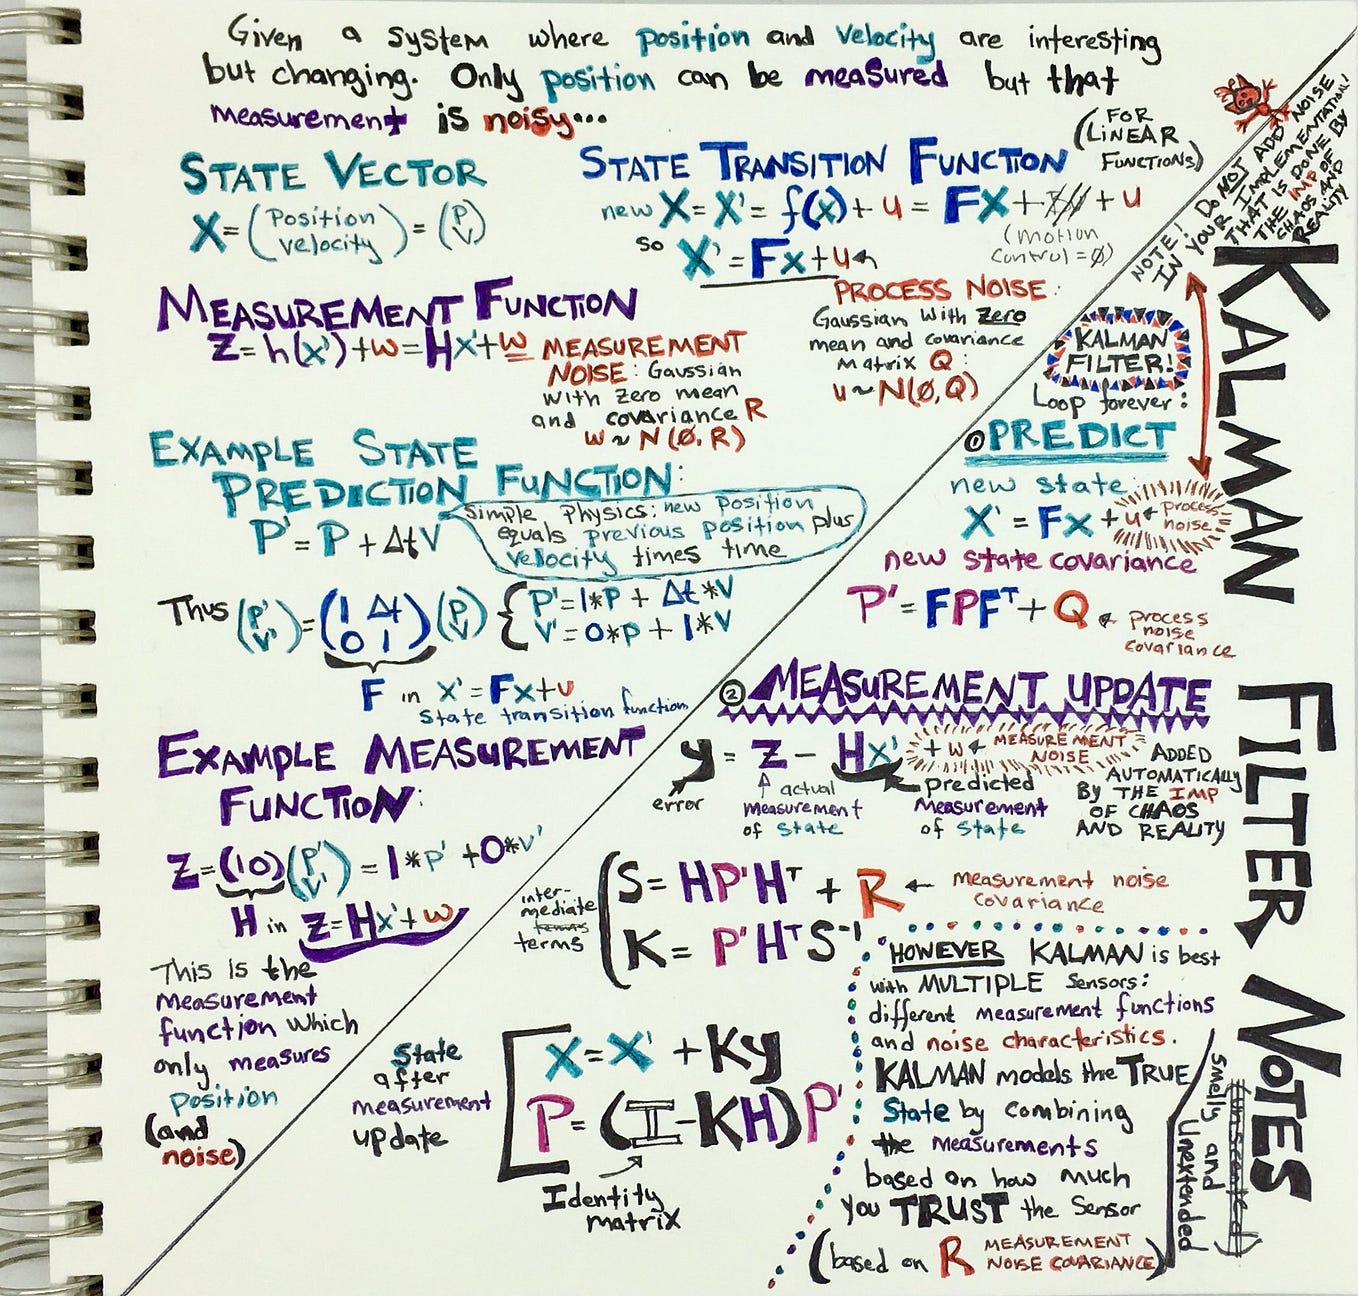 Given a system where position and velocity are interesting
but changing. Only position can be measured but that
measurement is noisy...
STATE VECTOR
X = (Position velocity) = (P V)
STATE TRANSITION FUNCTION
(FOR
LINEAR
FUNCTIONS)
new X = X' = f(x) + u = FX + + u
(motion
control = Ø)
so X' = Fx + u
PROCESS NOISE:
Gaussian with zero
mean and covariance
matrix Q:
u ~ N(Ø, Q)
MEASUREMENT FUNCTION
Z = h(x') + w = Hx' + w
MEASUREMENT
NOISE: Gaussian
with zero mean
and covariance R
w ~ N(Ø, R)
EXAMPLE STATE
PREDICTION FUNCTION:
P' = P + Δt V
Simple Physics: new position
equals previous position plus
velocity times time
Thus (P' V') = (1 Δt 0 1) (P V) { P' = 1*P + Δt*V
V' = 0*P + 1*V
F in X' = Fx + u
state transition function
EXAMPLE MEASUREMENT
FUNCTION:
Z = (1 0) (P' V') = 1*P' + 0*V'
H in Z = Hx' + w
This is the
measurement
function which
only measures
position
(and
noise)
NOTE! DO NOT ADD NOISE
IN YOUR IMPLEMENTATION!
THAT IS DONE BY
THE IMP OF
CHAOS AND
REALITY
KALMAN FILTER NOTES
KALMAN
FILTER!
Loop forever:
① PREDICT
new state:
X' = Fx + u ← process
noise
new state covariance
P' = FPFᵀ + Q ← process
noise
covariance
② MEASUREMENT UPDATE
y = Z - Hx' + w ← MEASUREMENT
NOISE
ADDED
AUTOMATICALLY
BY THE IMP
OF CHAOS
AND REALITY
error
actual
measurement
of state
predicted
measurement
of state
inter-
mediate
terms
terms
S = HP'Hᵀ + R ← measurement noise
covariance
K = P'HᵀS⁻¹
State
after
measurement
update
X = X' + Ky
P = (I - KH)P'
Identity
matrix
HOWEVER KALMAN is best
with MULTIPLE sensors:
different measurement functions
and noise characteristics.
KALMAN models the TRUE
State by combining
the measurements
based on how much
you TRUST the Sensor
(based on R MEASUREMENT
NOISE COVARIANCE)
(unscented)
smelly and
Unextended